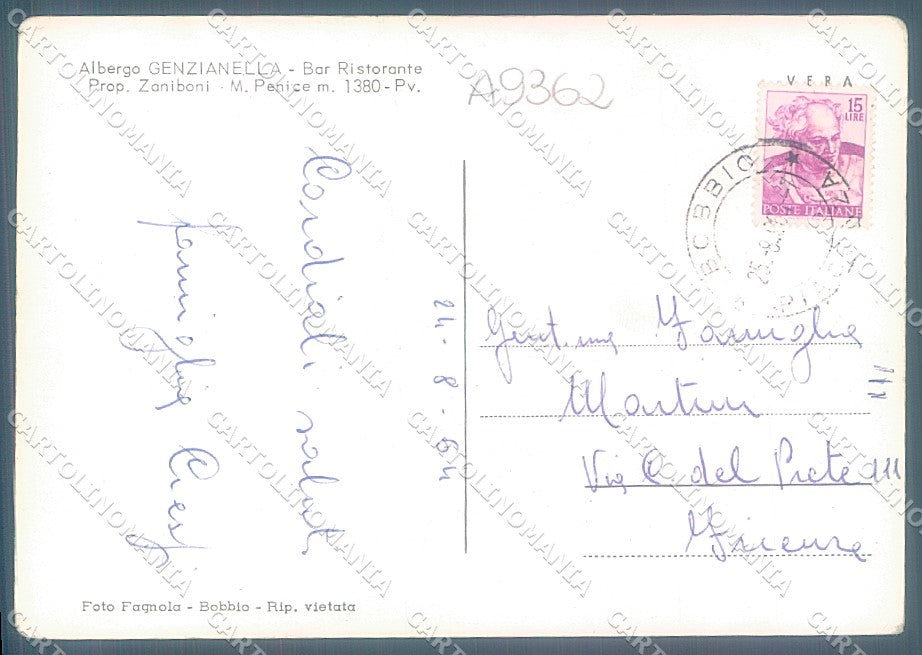 Albergo GENZIANELLA - Bar Ristorante
Prop. Zaniboni - M. Penice m. 1380 - Pv.
A9362
VERA
15
LIRE
POSTE ITALIANE
BOBBIO
Cordiali saluti
famiglia
24-8-64
Gent.ma Famiglia
Martini
Via C del Prete 111
Firenze
Foto Fagnola - Bobbio - Rip. vietata
CARTOLINOMANIA